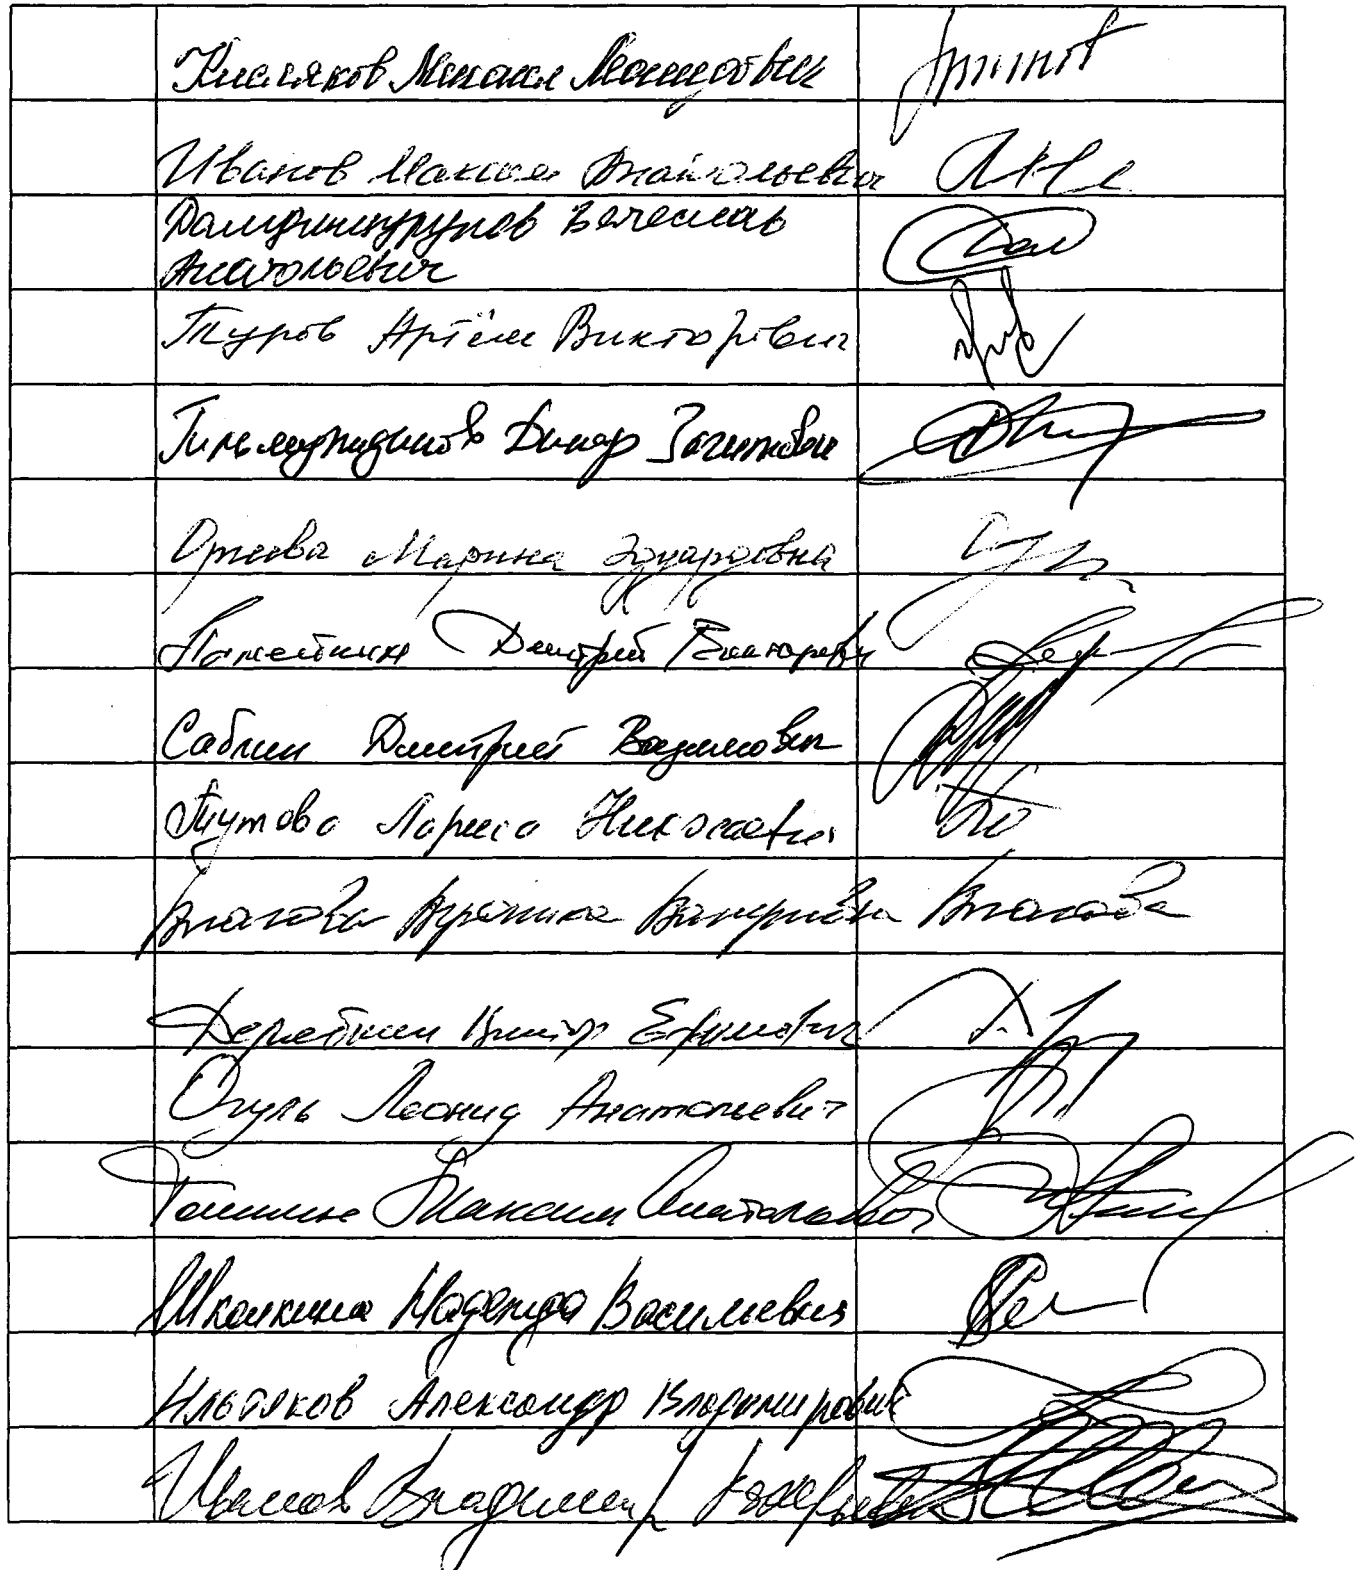 Кисляков Михаил Леонидович
Иванов Максим Анатольевич
Дамдинцурунов Вячеслав
Анатольевич
Туров Артём Викторович
Гильмутдинов Динар Загитович
Оргеева Марина Эдуардовна
Дмитрий Викторович
Саблин Дмитрий Вадимович
Тутова Лариса Николаевна
Власова Вероника Валериевна Власова
Дерябкин Виктор Ефимович
Огуль Леонид Анатольевич
Топилин Максим Анатольевич
Школкина Надежда Васильевна
Ильтяков Александр Владимирович
Иванов Владимир Валерьевич